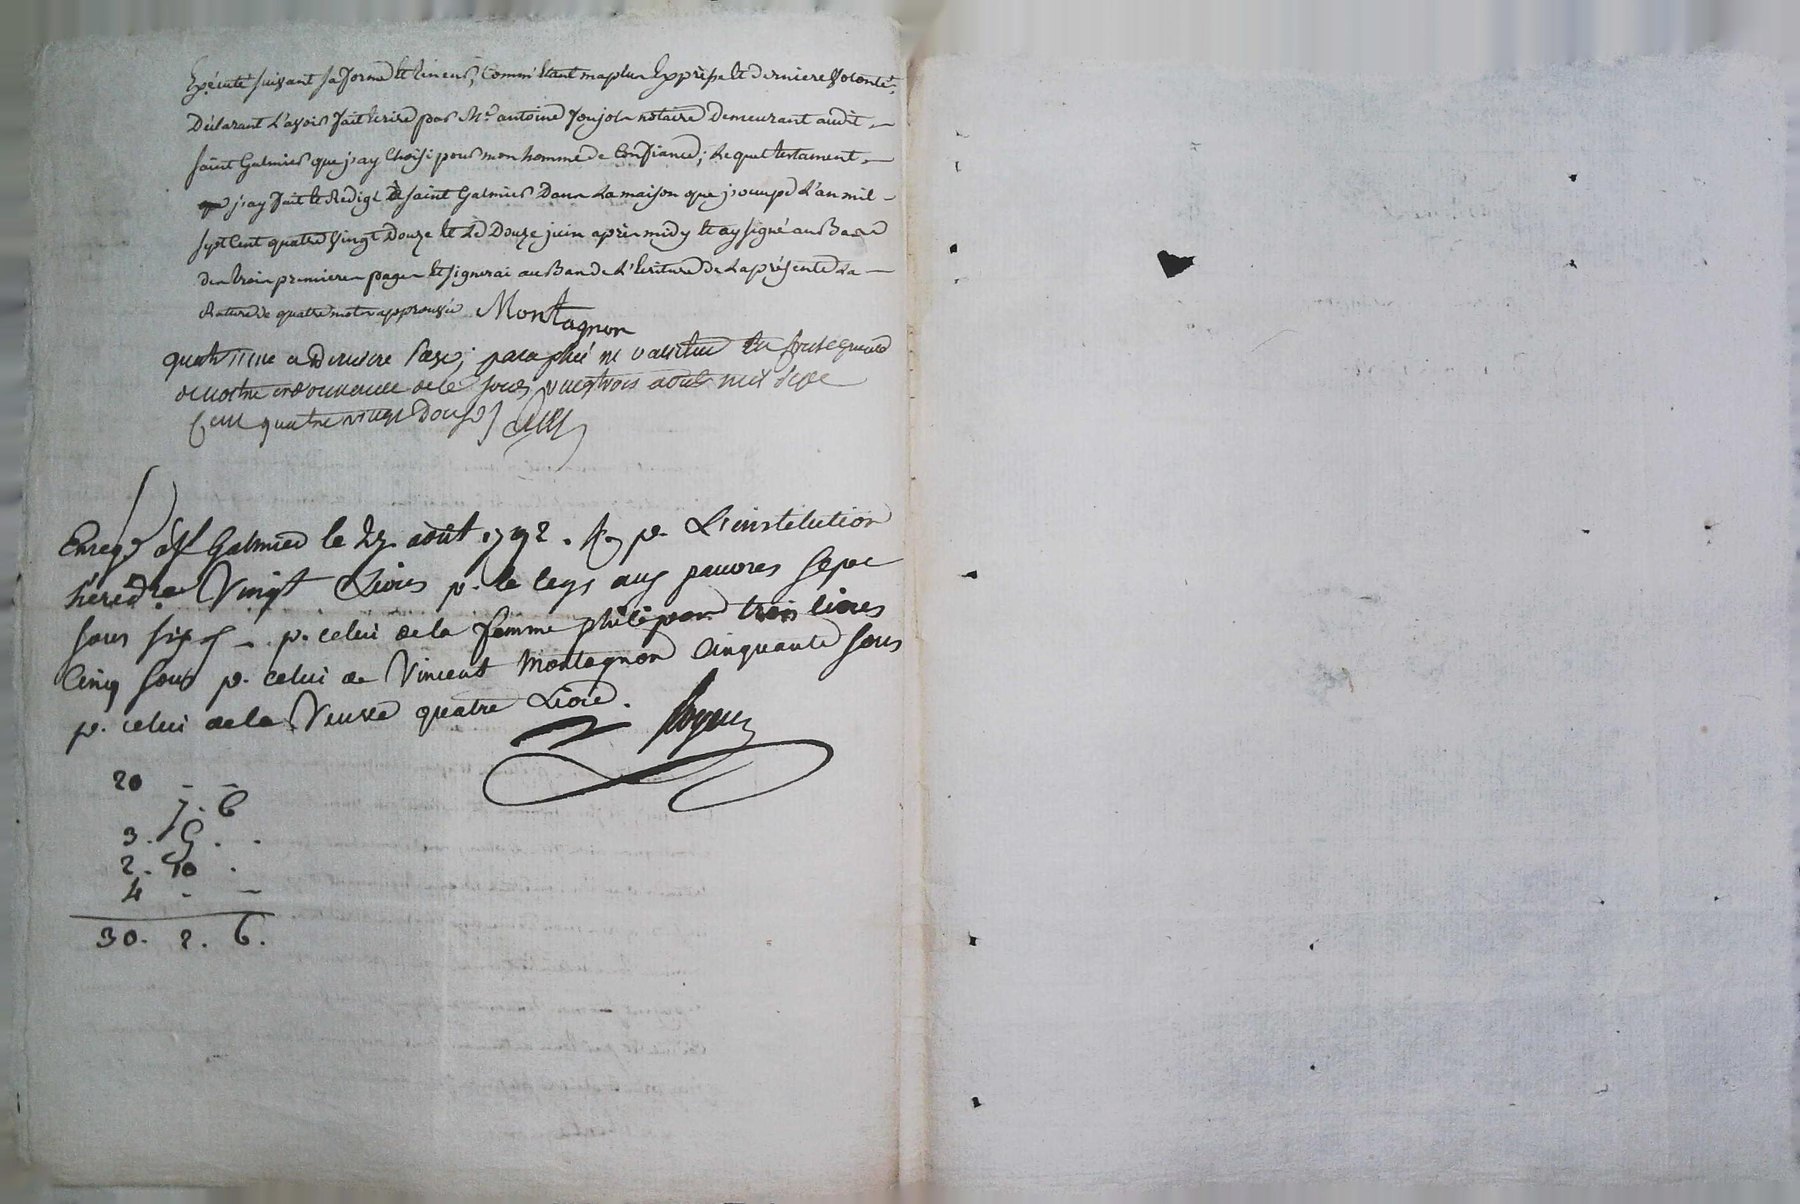 Exécuté suivant sa forme et teneur, comm'étant ma plus Expresse et derniere volonté,
Déclarant L'avoir fait Ecrire par Me. antoine Joujol notaire Demeurant audit
saint Galmier que j'ay Choisi pour mon homme de Confiance; Lequel testament
j'ay fait et Redigé à saint Galmier Dans La maison que j'occupe L'an mil
sept Cent quatre Vingt Douze et Le Douze juin après midy et ay signé au Bas
des trois premieres pages et signerai au Bas de L'Ecriture de La présente La
Rature de quatre mots approuvée Montagnon
quatrieme et Derniere page; paraphée ne varietur en
de nostre ordonnance de ce jour vingt trois aout mil sept
Cent quatre vingt Douze
Enregé. à St Galmier le 27 août 1792. R. p. L'institution
héréd.re Vingt Livres p. le legs aux pauvres sept
sous six d. p. celui de la femme philipon trois livres
Cinq sous p. celui de Vincent Montagnon Cinquante sous
p. celui de la Veuve quatre Livres.
20 - -
7. 6
3. 5. .
2. 10 .
4 - -
30. 2. 6.